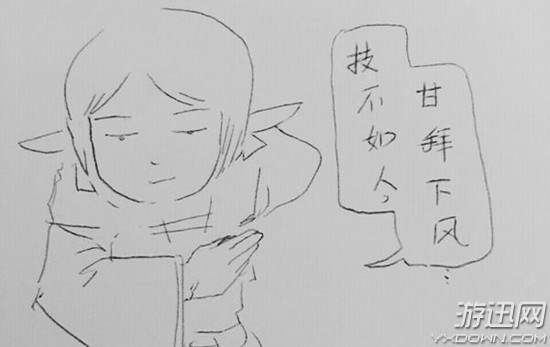 技不如人，
甘拜下风…
游迅网
YXDOWN.COM